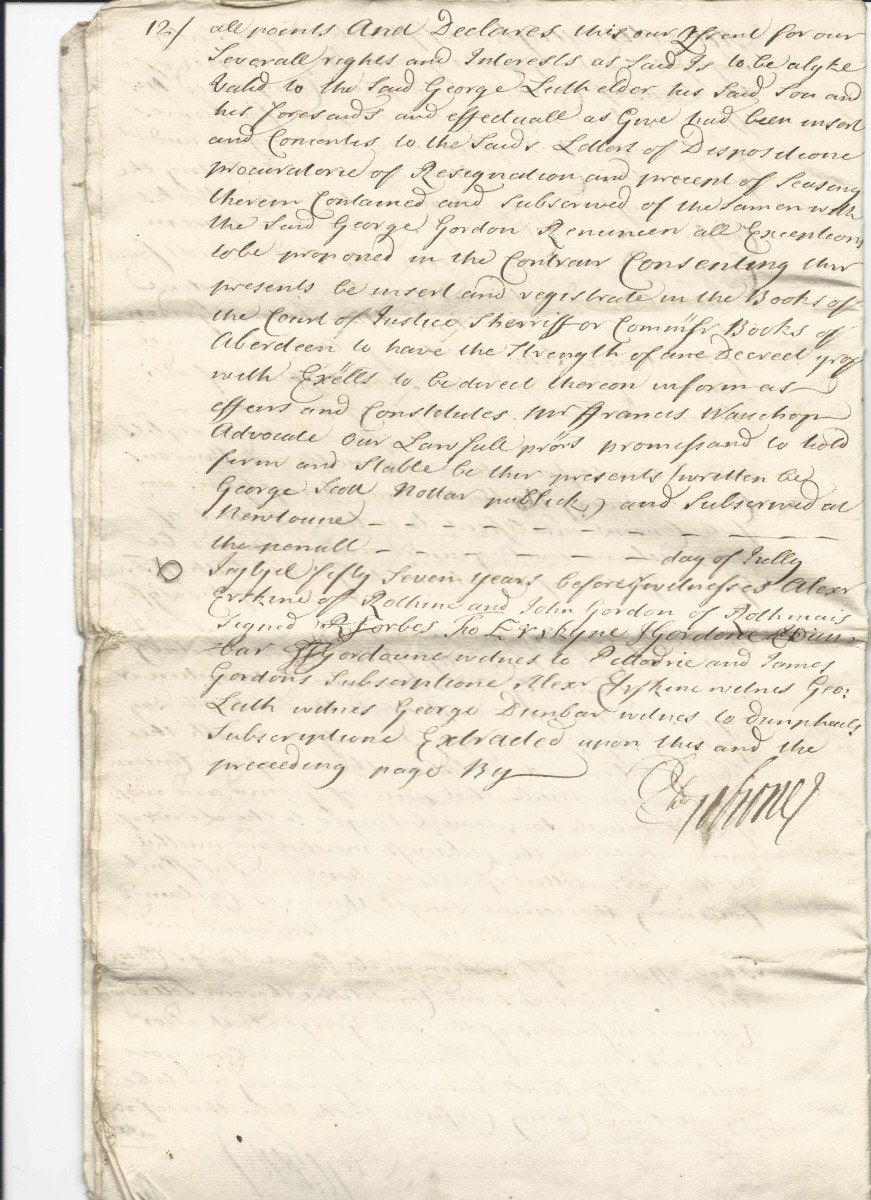 12/ all points And Declares this our Assent for our
Severall rights and Interests as said Is to be alyke
Valid to the Said George Leith elder his Said Son and
his foresaids and effectuall as Give had been insert
and Consentis to the Saids Letters of Dispositione
procuratorie of Resignation and precept of Seasing
therein Contained and Subscrived of the Samen with
the Said George Gordon Renuncen all Exceptions
to be proponed in the Contrair Consenting thir
presents be insert and registrate in the Books of
the Court of Justice Sherriff or Commissr Books of
Aberdeen to have the Strength of ane Decreet yrof
with Exells to be direct thereon in form as
effeirs and Constitutes Mr ffrancis Wauchop
Advocate Our Lawfull prõrs promissand to hold
firm and Stable be thir presents (written be
George Scott Nottar publick) and Subscrived at
Newtoune
the penult day of Jully
Jajvjc fifty Seven years before witnesses Alexr
Erskine of Rothnie and John Gordon of Rothmais
Signed R Forbes Tho Erskyne J Gordone Dun-
bar Gordoune witnes to Pittodrie and James
Gordons Subscriptione Alexr Erskine witnes Geo:
Leith witnes George Dunbar witnes to Dunphails
Subscriptione Extracted upon this and the
preceeding page By